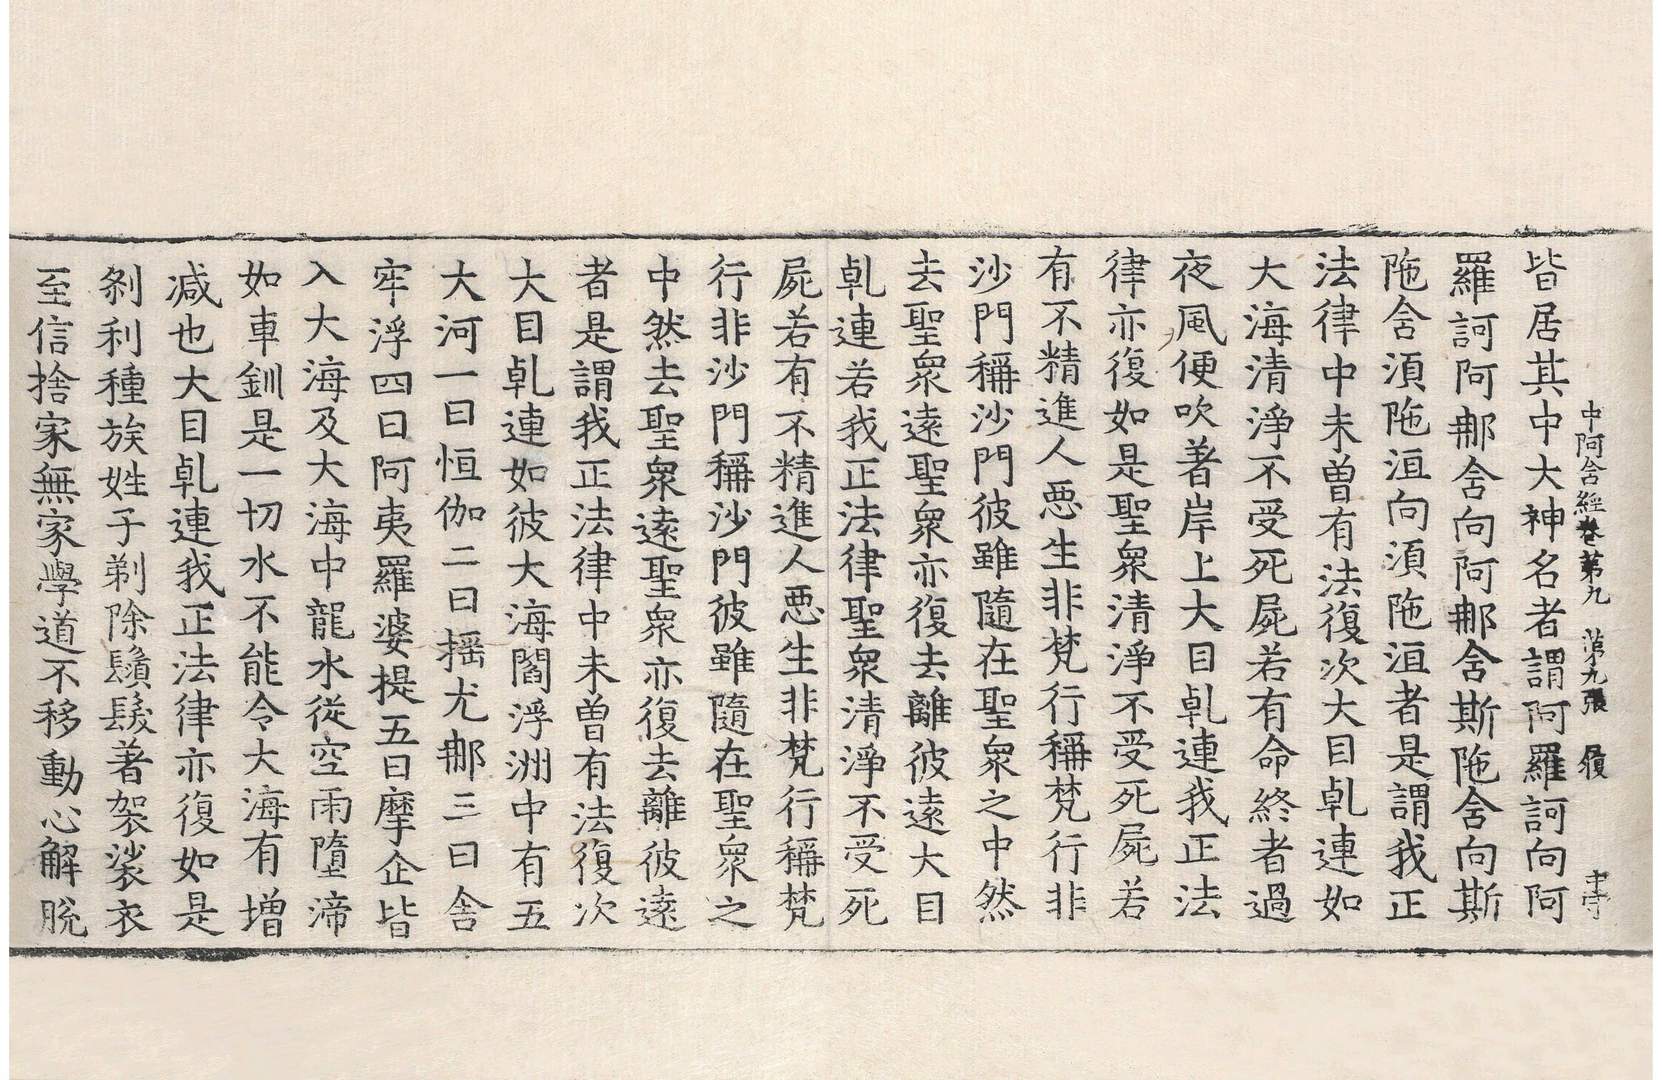 中阿含經卷第九 第九張 履
皆居其中大神名者謂阿羅訶向阿
羅訶阿那含向阿那含斯陁含向斯
陁含湏陁洹向湏陁洹者是謂我正
法律中未曽有法復次大目乹連如
大海清淨不受死屍若有命終者過
夜風便吹著岸上大目乹連我正法
律亦復如是聖衆清淨不受死屍若
有不精進人惡生非梵行稱梵行非
沙門稱沙門彼雖隨在聖衆之中然
去聖衆逺聖衆亦復去離彼逺大目
乹連若我正法律聖衆清淨不受死
屍若有不精進人惡生非梵行稱梵
行非沙門稱沙門彼雖隨在聖衆之
中然去聖衆逺聖衆亦復去離彼逺
者是謂我正法律中未曽有法復次
大目乹連如彼大海閻浮洲中有五
大河一曰恒伽二曰摇尤那三曰舍
牢浮四曰阿夷羅婆提五曰摩企皆
入大海及大海中龍水從空雨墮渧
如車釧是一切水不能令大海有増
减也大目乹連我正法律亦復如是
剎利種族姓子剃除鬚髮著袈裟衣
至信捨家無家學道不移動心解脫